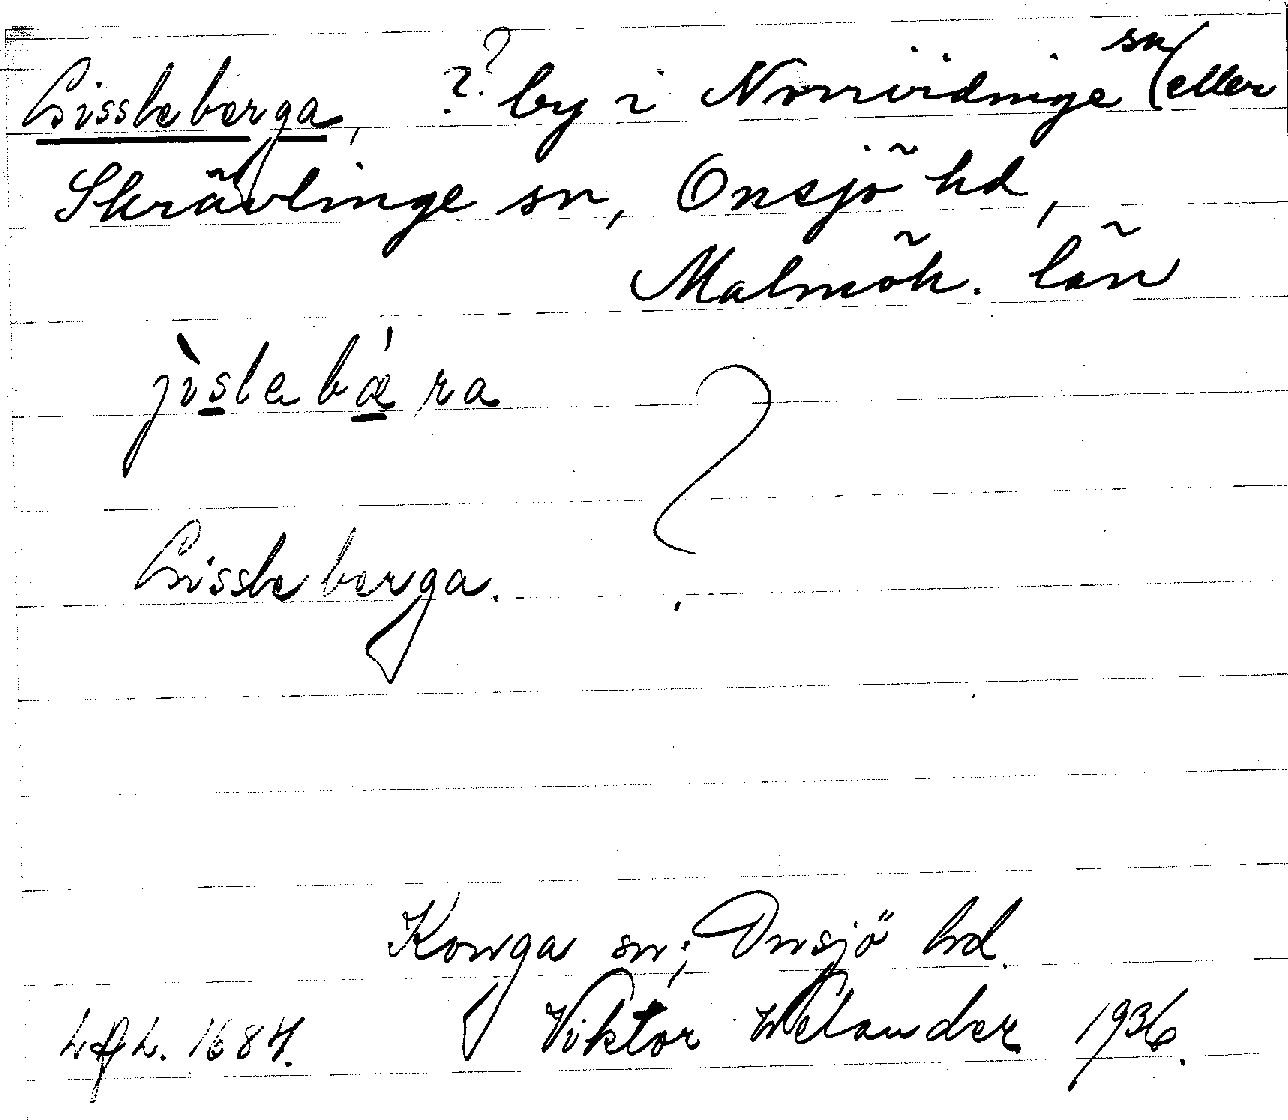 Gissleberga, ?? by i Norrvidinge sn (eller
Skrävlinge sn, Onsjö hd,
Malmöh. län
jìslebæ̀ra ?
Gissleberga.
Konga sn; Onsjö hd.
Viktor Welander 1936.